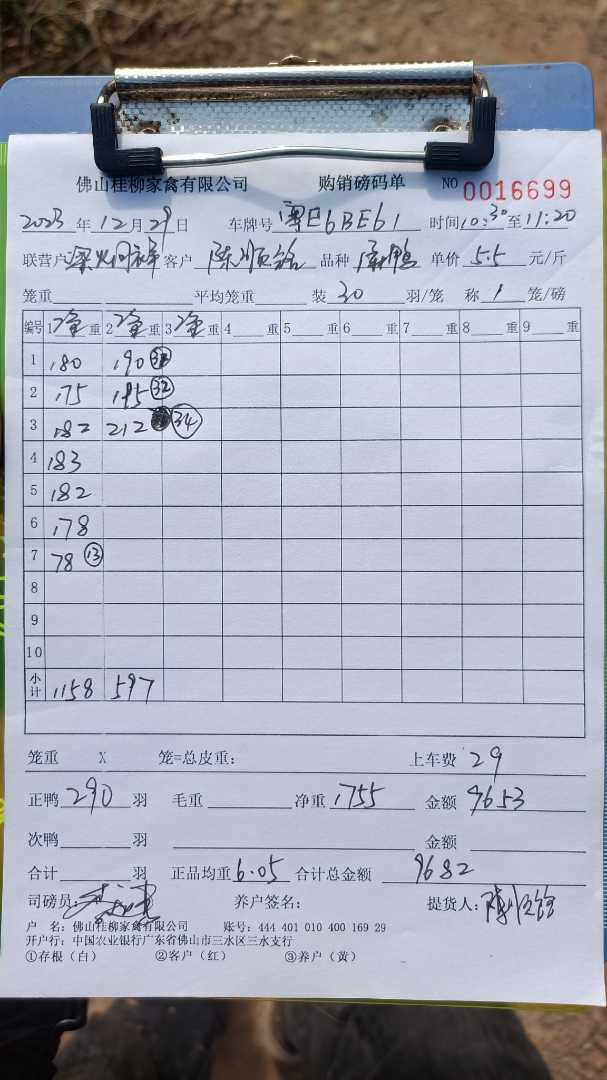 佛山桂柳家禽有限公司 购销磅码单 NO 0016699
2023年12月29日 车牌号 粤E6BE61 时间10:30至11:20
联营户 客户 陈顺 品种 鸭 单价 5.5 元/斤
笼重 平均笼重 装 30 羽/笼 称 1 笼/磅
编号 1净重 2净重 3净重 4重 5重 6重 7重 8重 9重
1 180 190
2 175 195 32
3 182 212 34
4 183
5 182
6 178
7 78 13
8
9
10
小计 1158 597
笼重 X 笼=总皮重: 上车费 29
正鸭 290 羽 毛重 净重 1755 金额 9653
次鸭 羽 金额
合计 羽 正品均重 6.05 合计总金额 9682
司磅员: 养户签名: 提货人:
户 名: 佛山桂柳家禽有限公司 账号: 444 401 010 400 169 29
开户行: 中国农业银行广东省佛山市三水区三水支行
①存根(白) ②客户(红) ③养户(黄)